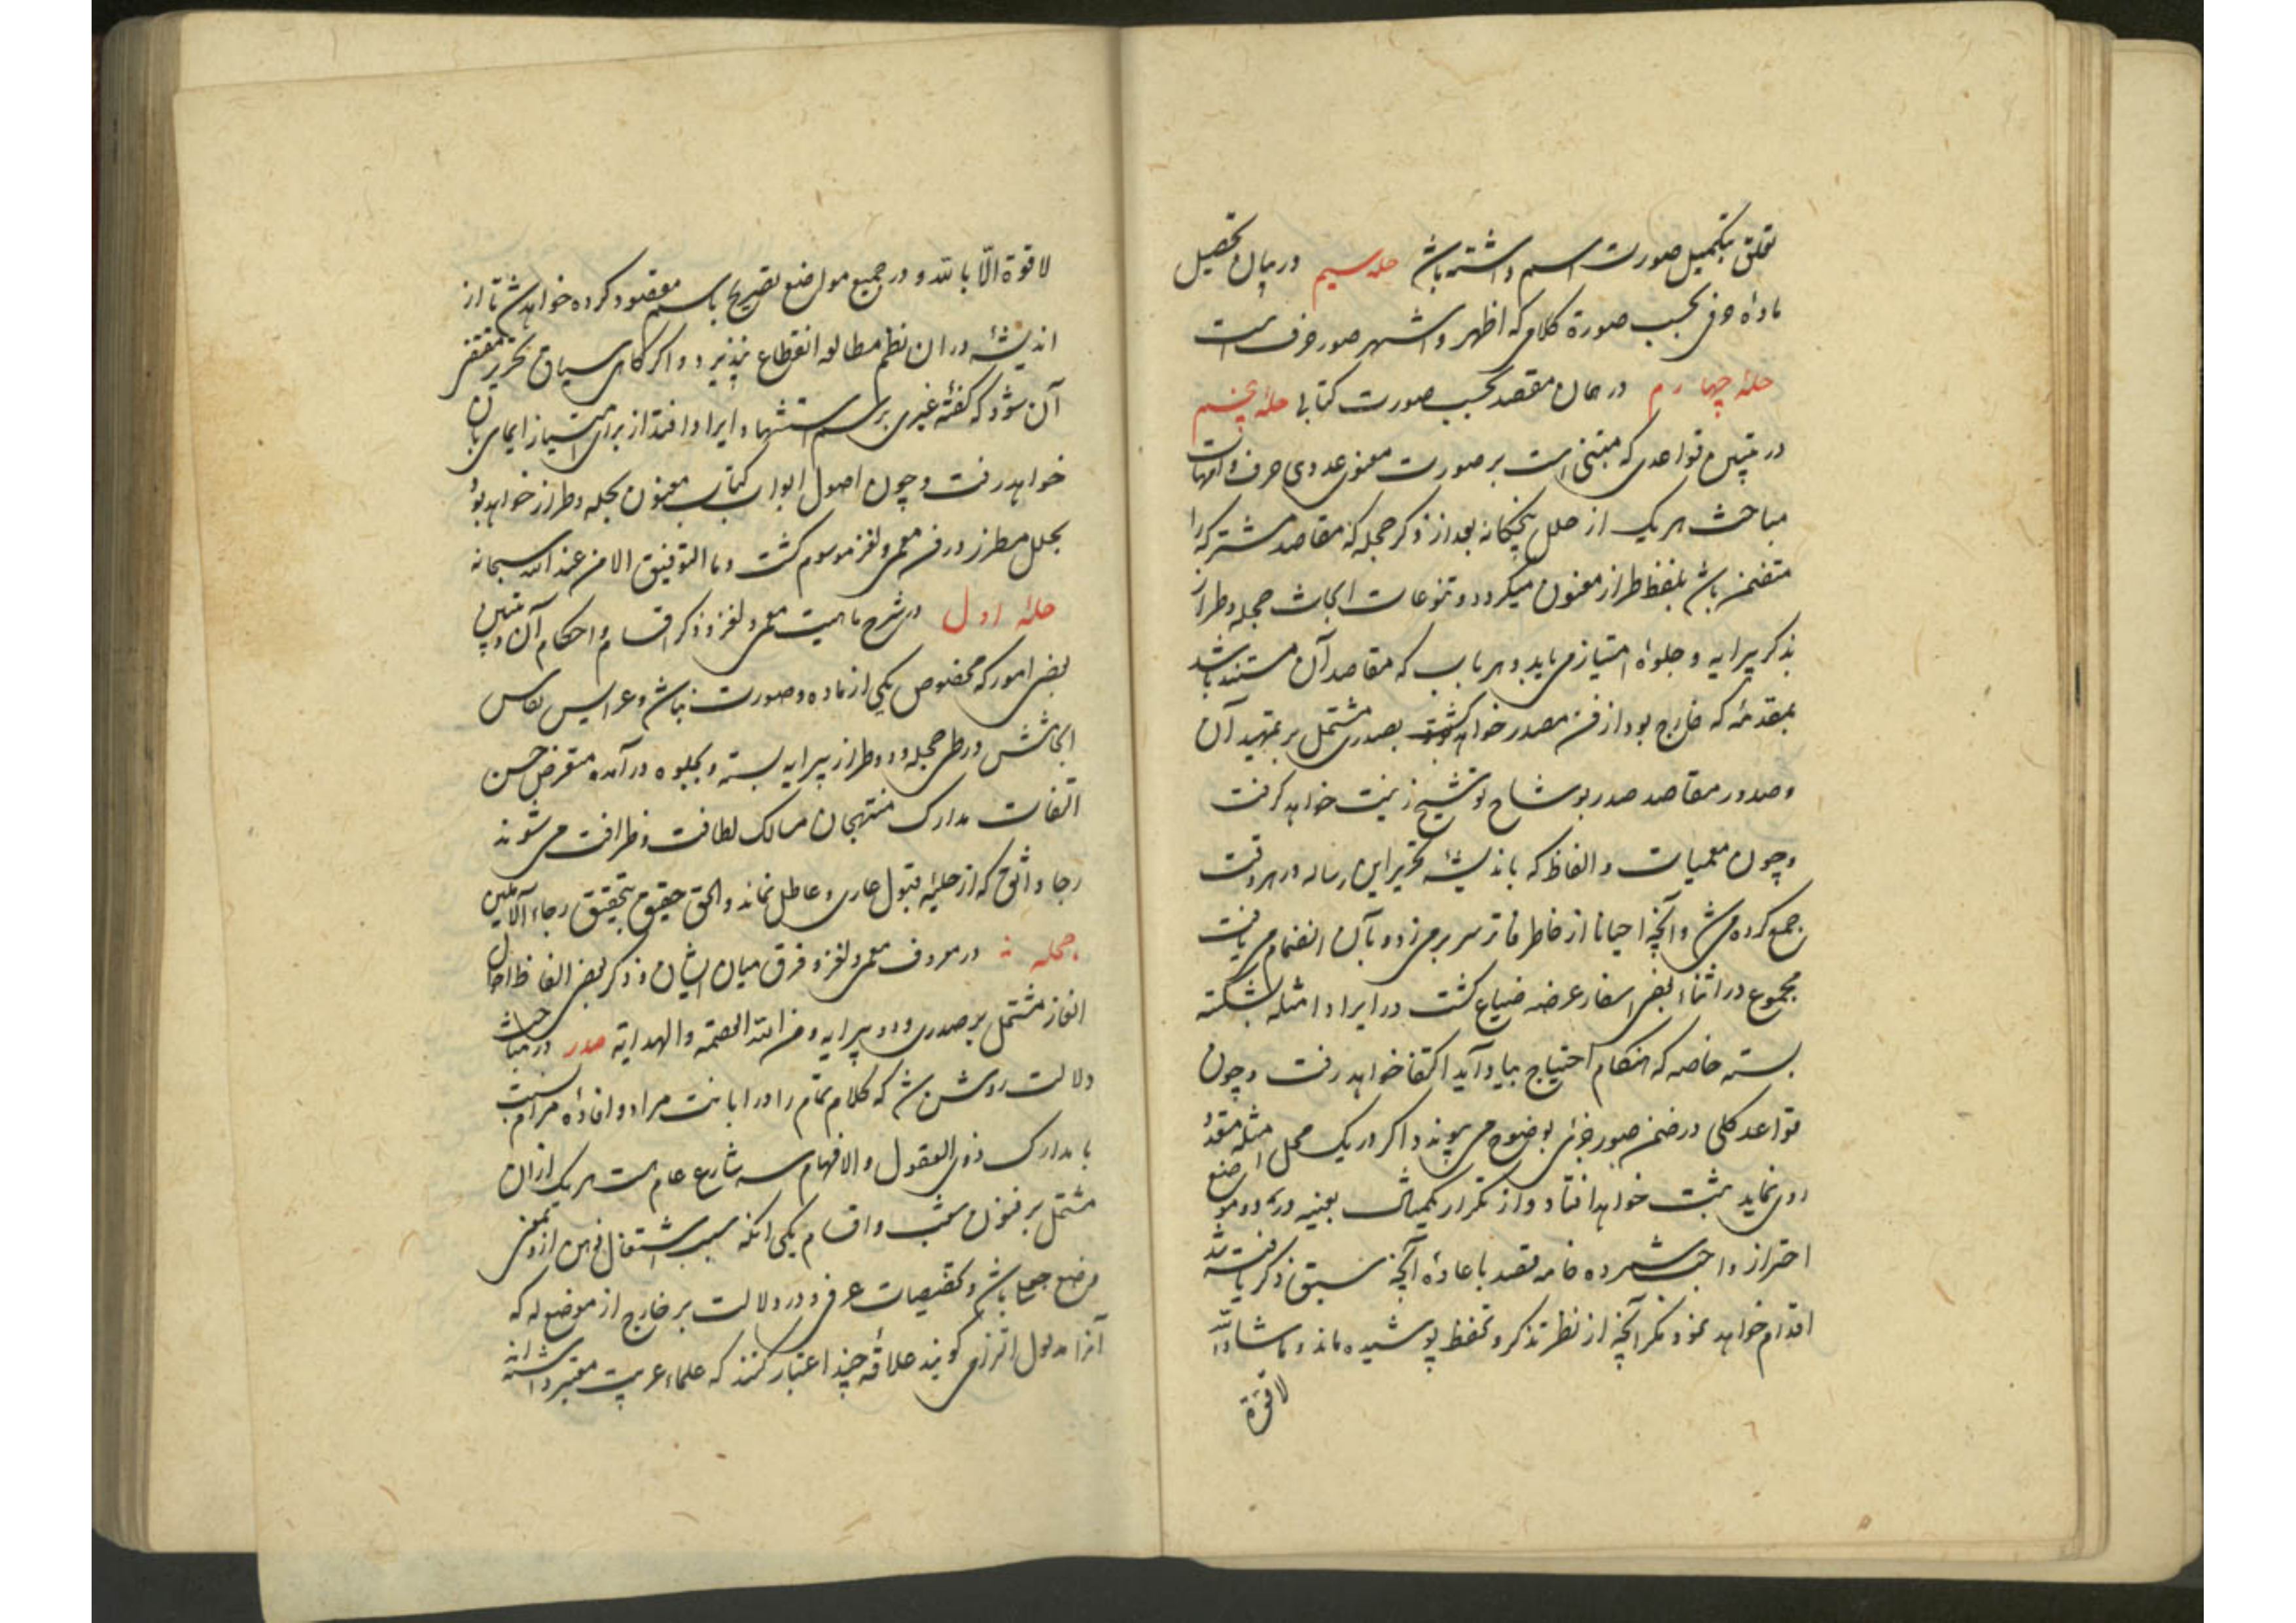 تعلق بتکمیل صورت اسم داشته باشد حلهٔ سیم در بیان تحصیل
مادهٔ حرفی بحسب صورة کلامی که اظهر و اشهر صور حرف است
حلهٔ چهارم در بیان مقصد بحسب صورت کتابی حلهٔ پنجم
در تبیین قواعدی که مبتنی است بر صورت معنوی عددی حرف و امهات
مباحث هر یک از حلل پنجگانه بعد از ذکر حجله که مقاصد مشترکه را
متضمن باشد بلفظ طراز معنون میکردد و تنوعات ابحاث حجله و طراز
بذکر پیرایه و جلوه امتیاز می یابد و هر باب که مقاصد آن مستند باشد
بمقدمهٔ که خارج بود از فن مصدر خواهد کشت بصدری مشتمل بر تمهید آن
و صدور مقاصد صدر بوشاح توشیح زینت خواهد کرفت
و چون معمیات و الغاظ که باندیشهٔ تحریر این رساله در هر وقت
جمع کرده می شد و آنچه احیانا از خاطر فاتر سر بر می زد و بآن انضمام می یافت
مجموع در اثناء بعضی اسفار عرضه ضیاع کشت در ایراد امثله بشکسته
بسته خاصه که هنکام احتیاج بیاد آید اکتفا خواهد رفت و چون
قواعد کلی در ضمن صور جزئی بوضوح می پیوندد اکر در یک محل امثله متعدد
روی نماید ثبت خواهد افتاد و از تکرار یک مثال بعینه در دو موضع
احتراز واجب شمرده خامه تقید باعادهٔ آنچه سبق ذکر یافته باشد
اقدام خواهد نمود مکر آنچه از نظر تذکر و تحفظ پوشیده ماند و ماشاءالله
لا قوة
لا قوة الّا بالله و در جمیع مواضع تصریح باسم مقصود کرده خواهد شد تا از
اندیشه در ان نظم مطالعه انقطاع نپذیرد و اکر کاهی سیاق تحریر مقتضی
آن شود که کفتهٔ غیری برسم استشهاد ایراد افتد از برای امتیاز ایمای بآن
خواهد رفت و چون اصول ابواب کتاب معنون بحله و طراز خواهد بود
بحلل مطرز در فن معمی و لغز موسوم کشت و ما التوفیق الا من عند الله سبحانه
حلهٔ اول در شرح ماهیت معمی و لغز و ذکر اقسام و احکام آن و تبیین
بعضی امور که مخصوص یکی از ماده و صورت نباشد و عرایس نفایس
ابحاثش در طی حجله و دو طراز پیرایه بسته و بجلوه در آمده متعرض حسن
التفات مدارک منتهجان مسالک لطافت و ظرافت می شوند
رجا واثق که از حلیهٔ قبول عاری و عاطل نماند والحق حقیق بتحقیق رجاء الآملین
حجله در معرف معمی و لغز و فرق میان ایشان و ذکر بعضی الفاظ احوال
الغاز مشتمل بر صدری و دو پیرایه و من الله العصمة و الهدایة صدر در مباحث
دلالت روشن شد که کلام تمام را در ابانت مراد و افادهٔ مرام نسبت
با مدارک ذوی العقول و الافهام سه شارع عام است هر یک از ان
مشتمل بر فنون شعب و اقسام یکی انکه سبب انتقال ذهن از و بمعنی
وضع جعل باشد و تخصیصات عرفی و در دلالت بر خارج از موضوع له که
آنرا مدلول التزامی کویند علاقهٔ چند اعتبار کنند که علماء عربیت معتبر داشته اند